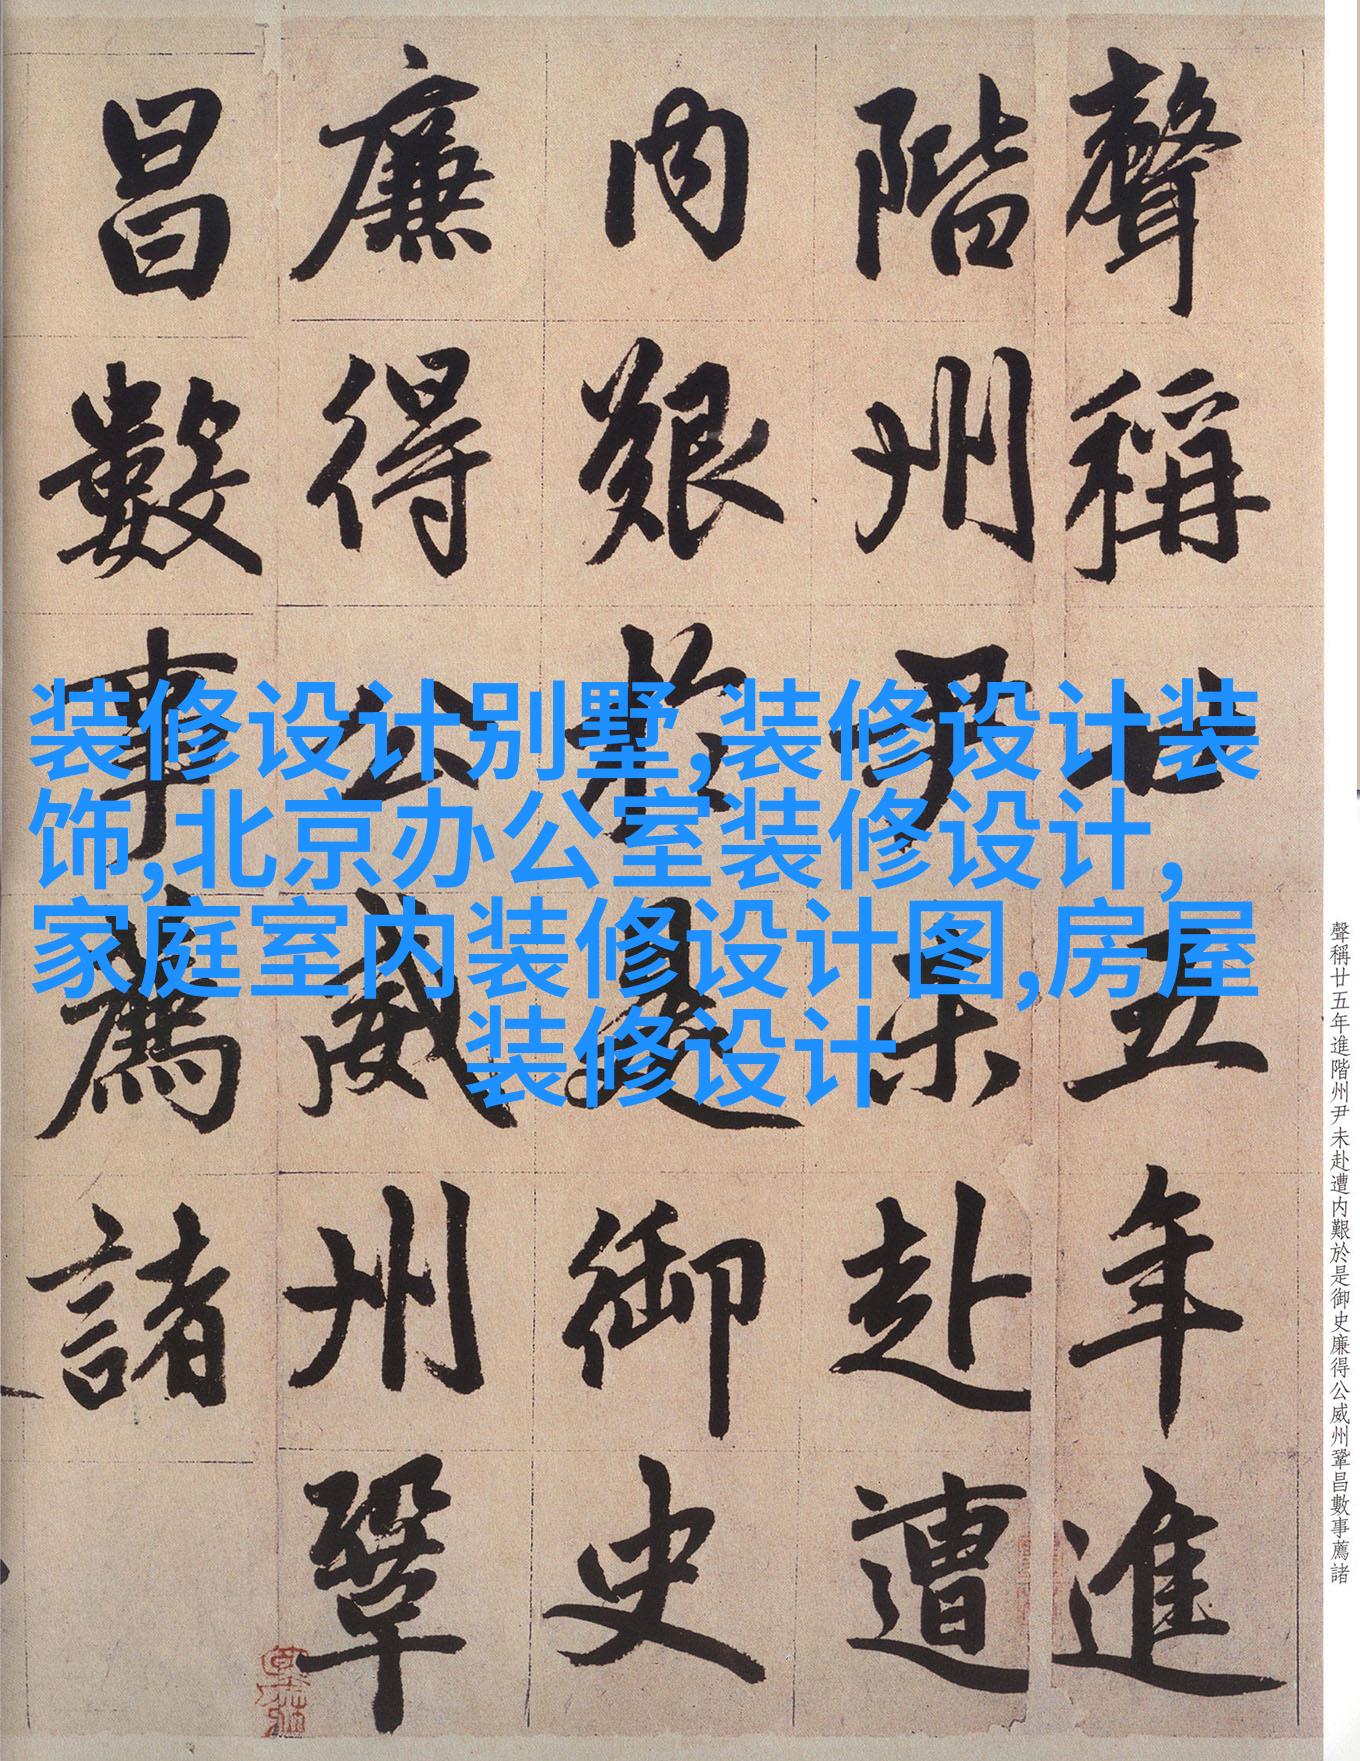 聲稱廿五年進
階州尹未赴遭
内艱於是御史
廉得公威州鞏
昌數事薦諸
装修设计别墅,装修设计装
饰,北京办公室装修设计,
家庭室内装修设计图,房屋
装修设计
聲稱廿五年進階州尹未赴遭内艱於是御史廉得公威州鞏昌數事薦諸